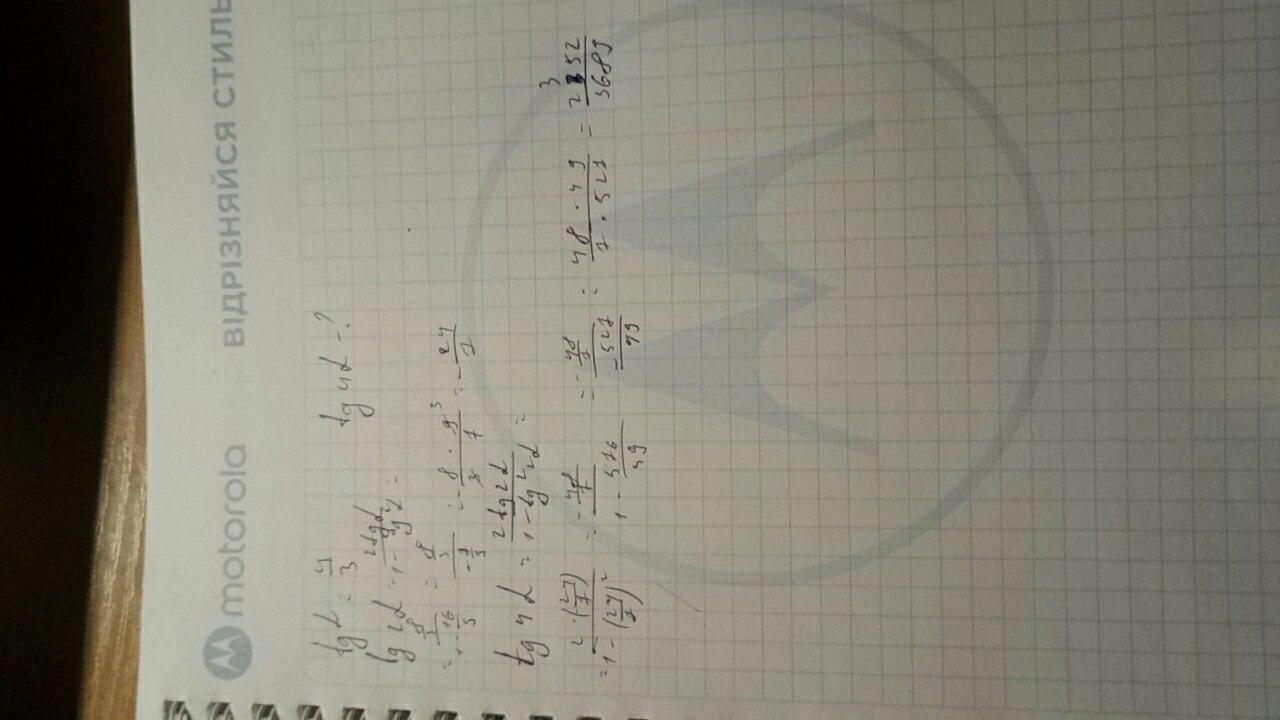 motorola ВІДРІЗНЯЙСЯ СТИЛЬ
tg α = 4/3 tg 4α - ?
tg 2α = 2tg α / 1 - tg² α =
= 8/3 / 1 - 16/9 = 8/3 / -7/9 = - 8/3 · 9³/7 = - 24/7
tg 4α = 2tg 2α / 1 - tg² 2α =
= 2 · (24/7) / 1 - (24/7)² = - 48/7 / 1 - 576/49 = - 48/7 / - 527/49 = 48 · 49 / 7 · 527 = 2352/3689